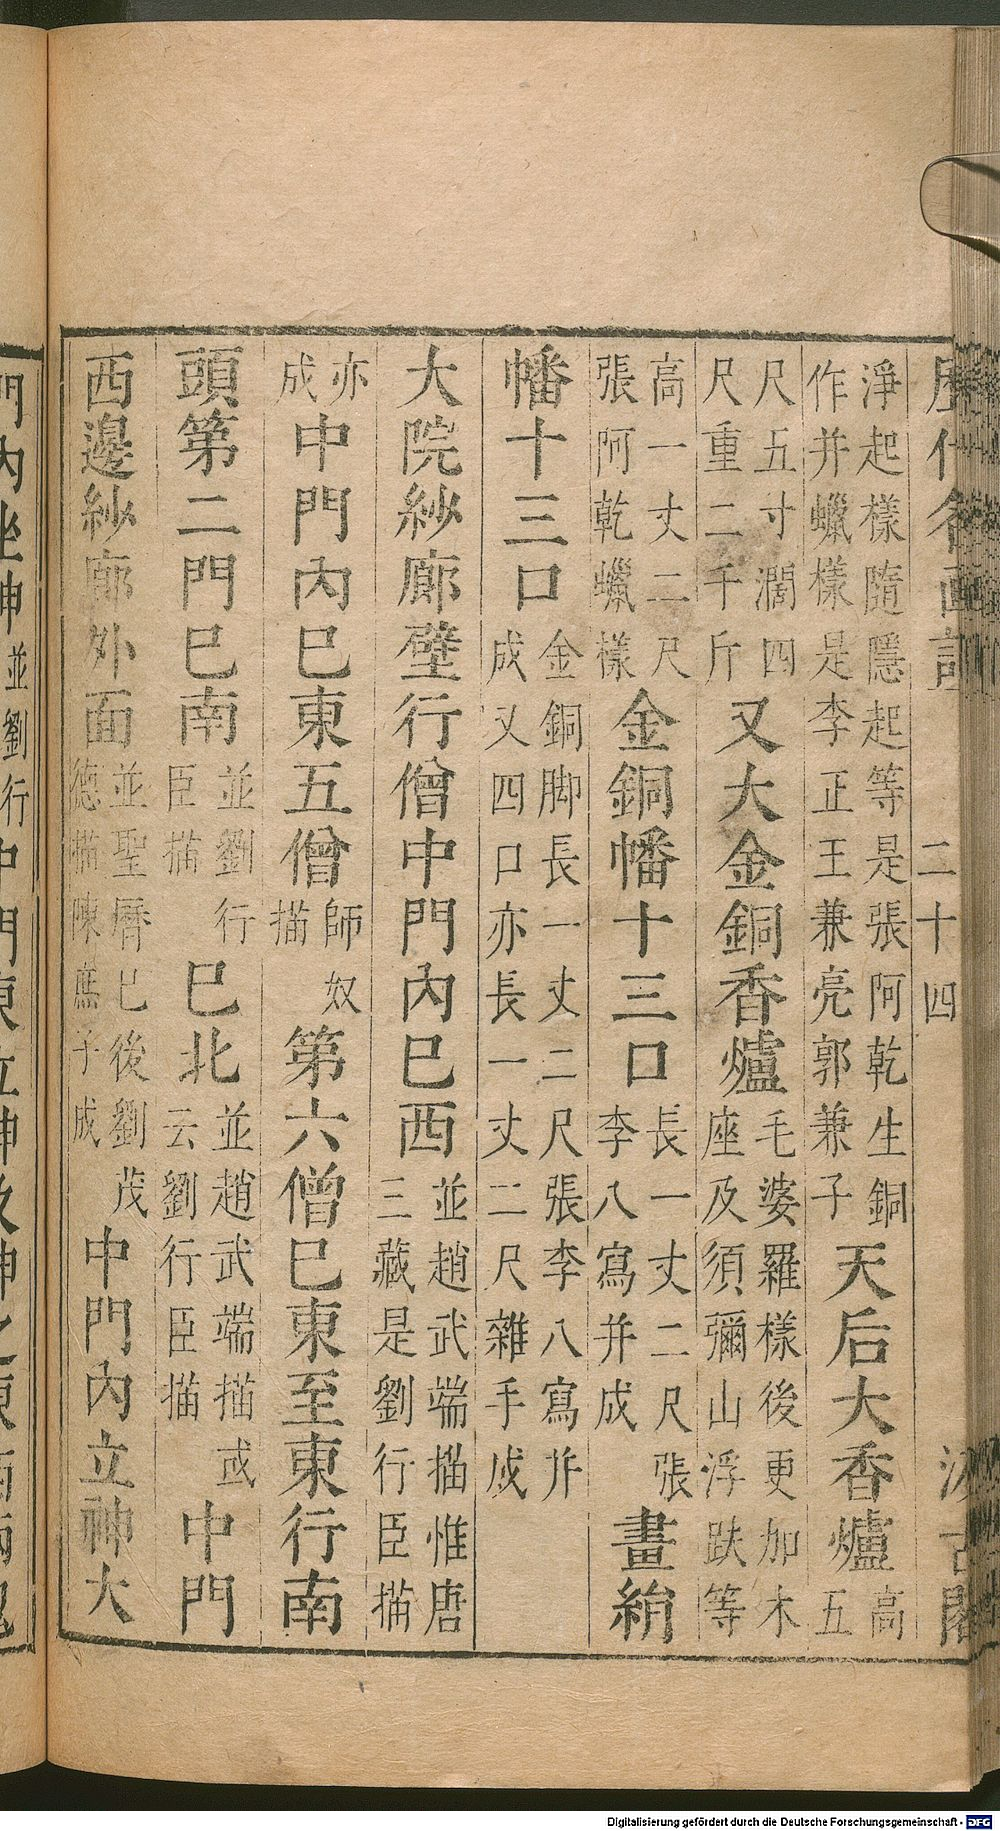 歷代名畫記 二十四 汲古閣
淨起樣隨隱起等是張阿乾生銅
作并蠟樣是李正王兼亮郭兼子 天后大香爐 高
五
尺五寸濶四
尺重二千斤 又大金銅香爐 毛婆羅樣後更加木
座及須彌山浮趺等
高一丈二尺
張阿乾蠟樣 金銅幡十三口 長一丈二尺張
李八寫并成 畫絹
幡十三口 金銅脚長一丈二尺張李八寫并
成又四口亦長一丈二尺雜手成
大院紗廊壁行僧中門內已西 並趙武端描惟唐
三藏是劉行臣描
亦
成 中門內已東五僧 師奴
描 第六僧已東至東行南
頭第二門已南 並劉行
臣描 已北 並趙武端描或
云劉行臣描 中門
西邊紗廊外面 並聖曆已後劉茂
德描陳廌子成 中門內立神大
門內坐神 並劉行